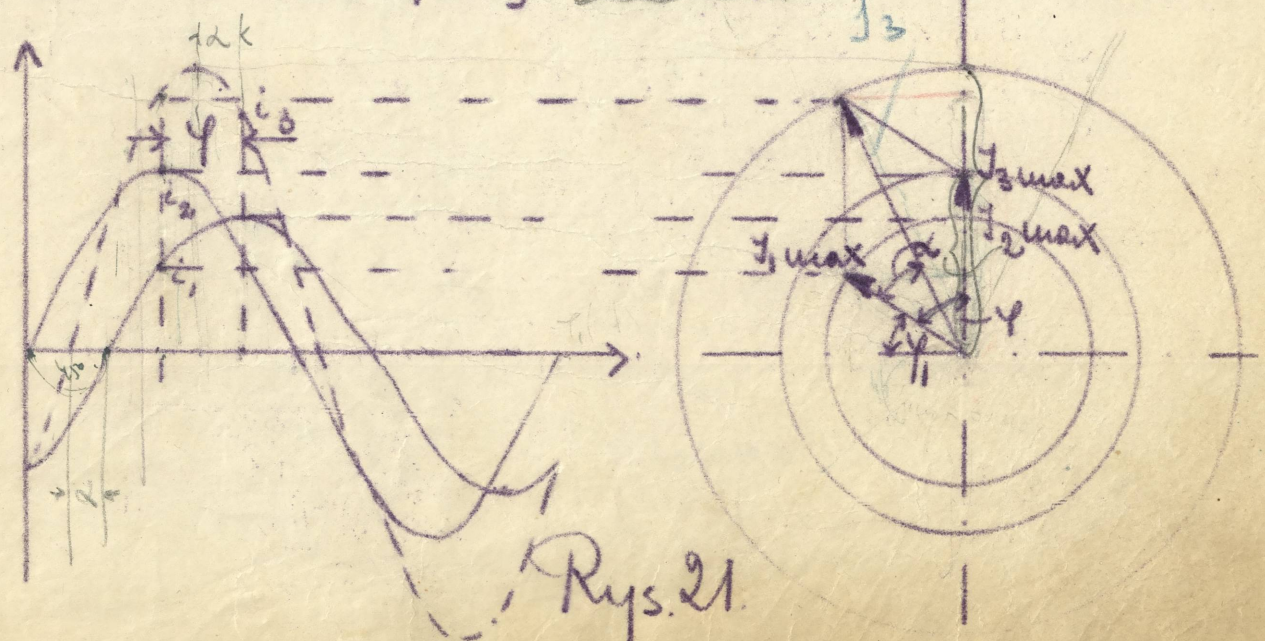 J₃
α k
φ
i₃
i₂
i₁
J₃max
J₂max
J₁max
α
φ
φ₁
α
Rys. 21.